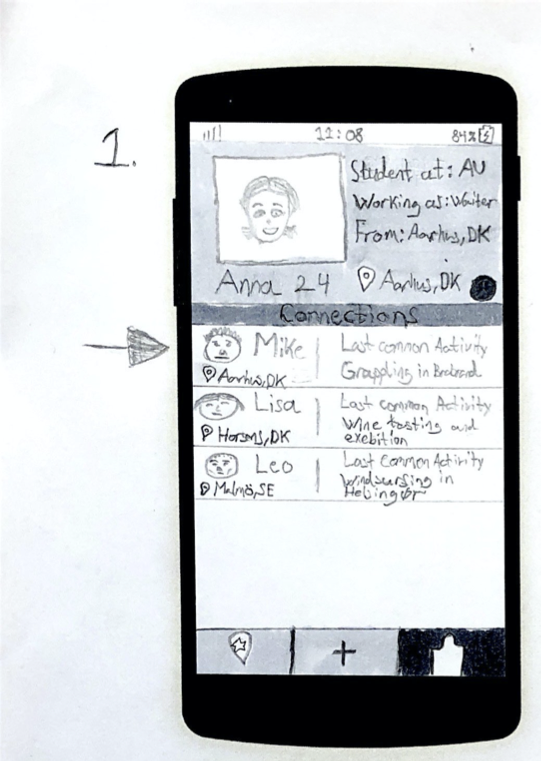 1.
11:08
84%
Student at: AU
Working as: Waiter
From: Aarhus, DK
Anna 24
Aarhus, DK
Connections
Mike
Aarhus, DK
Last common Activity
Grappling in Brabrand
Lisa
Horsens, DK
Last common Activity
Wine tasting and
exebition
Leo
Malmö, SE
Last Common Activity
Windsurfing in
Helsingør
+